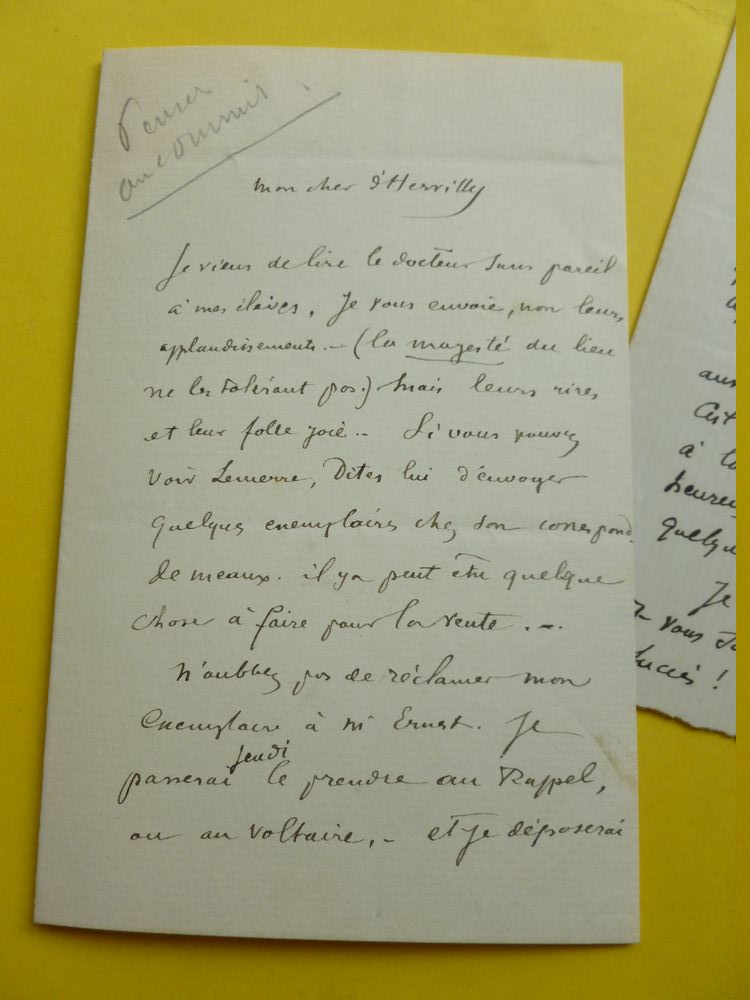 Penser
au commis
mon cher d'Hervilly
Je viens de lire le docteur Sans pareil
à mes élèves, Je vous envoie, non leurs
applaudissements. — (la majesté du lieu
ne les tolérant pas.) Mais leurs rires
et leur folle joie.. Si vous pouvez
voir Lemerre, Dites lui d'envoyer
quelques exemplaires chez son correspond.
de meaux. il y a peut être quelque
chose à faire pour la vente. —.
N'oubliez pas de réclamer mon
Exemplaire à M Ernest. Je
jeudi
passerai le prendre au Rappel,
ou au Voltaire, — et je déposerai
à
heureu
quelqu
Je
vous
succès !